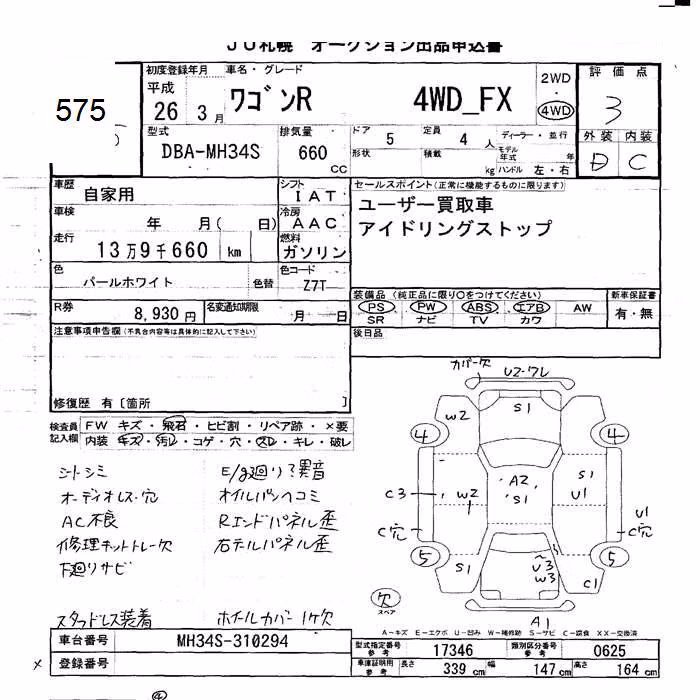 JU札幌 オークション出品申込書
575
初度登録年月 車名・グレード
平成 26 3月 ワゴンR 4WD_FX
2WD
4WD
評価点
3
外装 内装
D C
型式 排気量 ドア 5 定員 4人 ディーラー・並行
DBA-MH34S 660 CC
形状 積載 kg モデル年式 年
ハンドル 左・右
車歴 自家用 シフト IAT
車検 年 月( 日) 冷房 AAC
走行 13万9千660 km 燃料 ガソリン
色 パールホワイト 色替 色コード Z7T
R券 8,930円 名変通知期限 月 日
セールスポイント(正常に機能するものに限ります)
ユーザー買取車
アイドリングストップ
装備品(純正品に限り○をつけてください) 新車保証書
PS PW ABS エアB AW 有・無
SR ナビ TV カワ
後日品
注意事項申告欄(不具合内容等は具体的に記入して下さい)
修復歴 有〔箇所 〕
検査員記入欄 FW キズ・飛石・ヒビ割・リペア跡・×要
内装 キズ・汚レ・コゲ・穴・スレ・キレ・破レ
シートシミ
オーディオレス・穴
AC不良
修理キットトレー欠
下廻リサビ
スタッドレス装着
E/g廻り?異音
オイルパンヘコミ
Rエンドパネル歪
右テールパネル歪
ホイールカバー1ケ欠
カバー欠 U2・ワレ
W2 S1
4 4
C3 W2 A2 S1 S1 U1
C穴 U1 C穴
5 5
S1 U3 W3 C1
欠 スペア
A1
A-キズ E-エクボ U-凹み W-補修跡 S-サビ C-腐食 XX-交換済
車台番号 MH34S-310294
登録番号
型式指定番号 参考 17346 類別区分番号 参考 0625
車庫証明用 参考 長さ 339 cm 幅 147 cm 高さ 164 cm